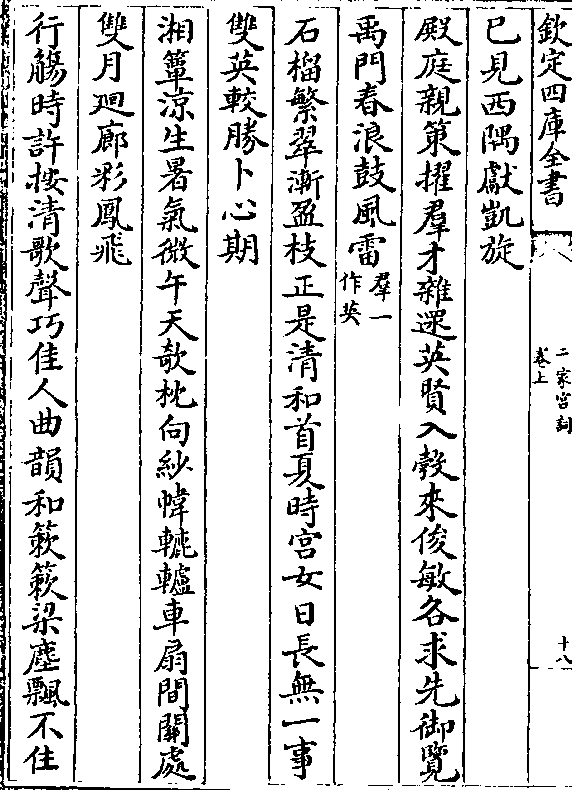 欽定四庫全書
二家宮詞
卷上
十八
已見西隅獻凱旋
殿庭親策擢羣才雜遝英賢入彀來俊敏各求先御覽
禹門春浪鼓風雷羣一作英
石榴繁翠漸盈枝正是清和首夏時宮女日長無一事
雙英較勝卜心期
湘簟涼生暑氣微午天欹枕向紗幃轆轤車扇間關處
雙月廻廊彩鳳飛
行觴時許按清歌聲巧佳人曲韻和簌簌梁塵飄不住